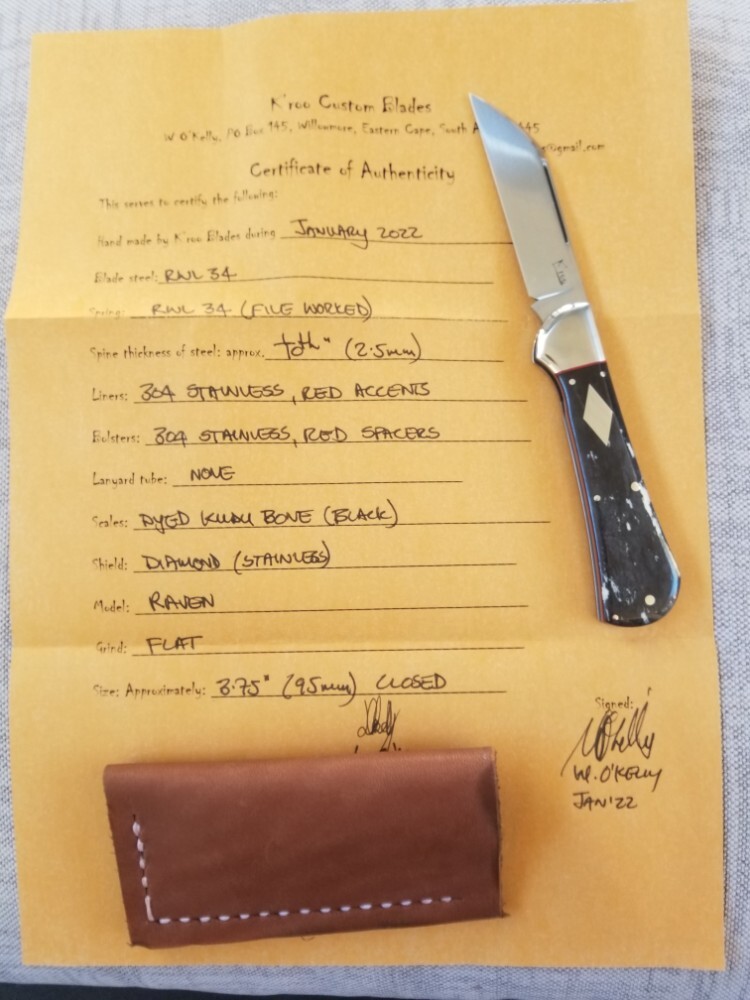 K'roo Custom Blades
W O'Kelly, PO Box 145, Willowmore, Eastern Cape, South 445
@gmail.com
Certificate of Authenticity
This serves to certify the following:
Hand made by K'roo Blades during JANUARY 2022
Blade steel: RWL 34
Spring: RWL 34 (FILE WORKED)
Spine thickness of steel: approx. (2.5mm)
Liners: 304 STAINLESS, RED ACCENTS
Bolsters: 304 STAINLESS, RED SPACERS
Lanyard tube: NONE
Scales: DYED KUDU BONE (BLACK)
Shield: DIAMOND (STAINLESS)
Model: RAVEN
Grind: FLAT
Size: Approximately: 3.75" (95mm) CLOSED
Signed:
W. O'KELLY
JAN'22
K'roo